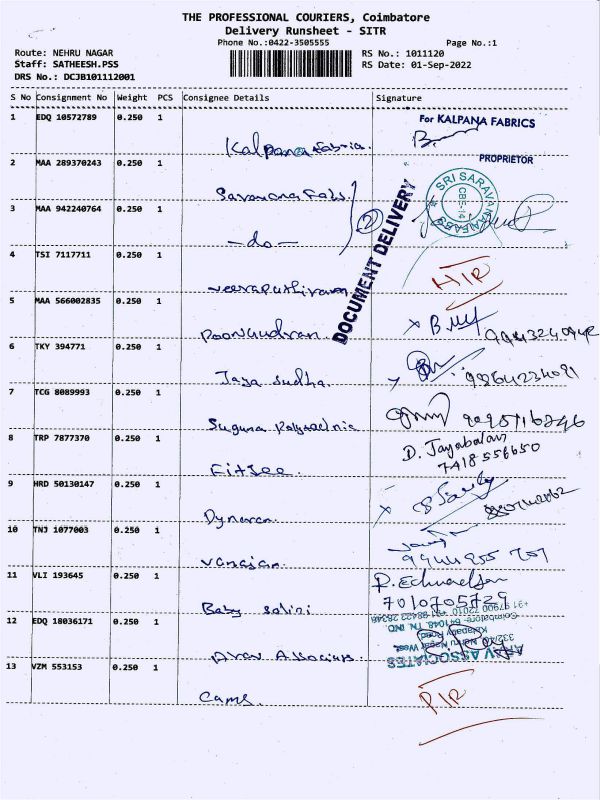 THE PROFESSIONAL COURIERS, Coimbatore
Delivery Runsheet - SITR
Phone No.:0422-3505555
Page No.:1
Route: NEHRU NAGAR
RS No.: 1011120
Staff: SATHEESH.PSS
RS Date: 01-Sep-2022
DRS No.: DCJB101112001
S No Consignment No Weight PCS Consignee Details Signature
1 EDQ 10572789 0.250 1
For KALPANA FABRICS
Kalpana Fabric.
PROPRIETOR
2 MAA 289370243 0.250 1
SRI SARAVANA
CBE-14
DOCUMENT DELIVERY
2
3 MAA 942240764 0.250 1
-do-
4 TSI 7117711 0.250 1
HIR
5 MAA 566002835 0.250 1
6 TKY 394771 0.250 1
Jaya Sudha.
7 TCG 8089993 0.250 1
Suguna
8 TRP 7877370 0.250 1
D. Jayabalan
7418556650
FitJee.
9 HRD 50130147 0.250 1
10 TNJ 1077003 0.250 1
11 VLI 193645 0.250 1
7010705729
Baby
12 EDQ 18036171 0.250 1
ARAV ASSOCIATES
332/42, Nehru Nagar West,
Kalapatty Road,
Coimbatore- 641048, TN, IND
Arav Associates
13 VZM 553153 0.250 1
PIR
Cams